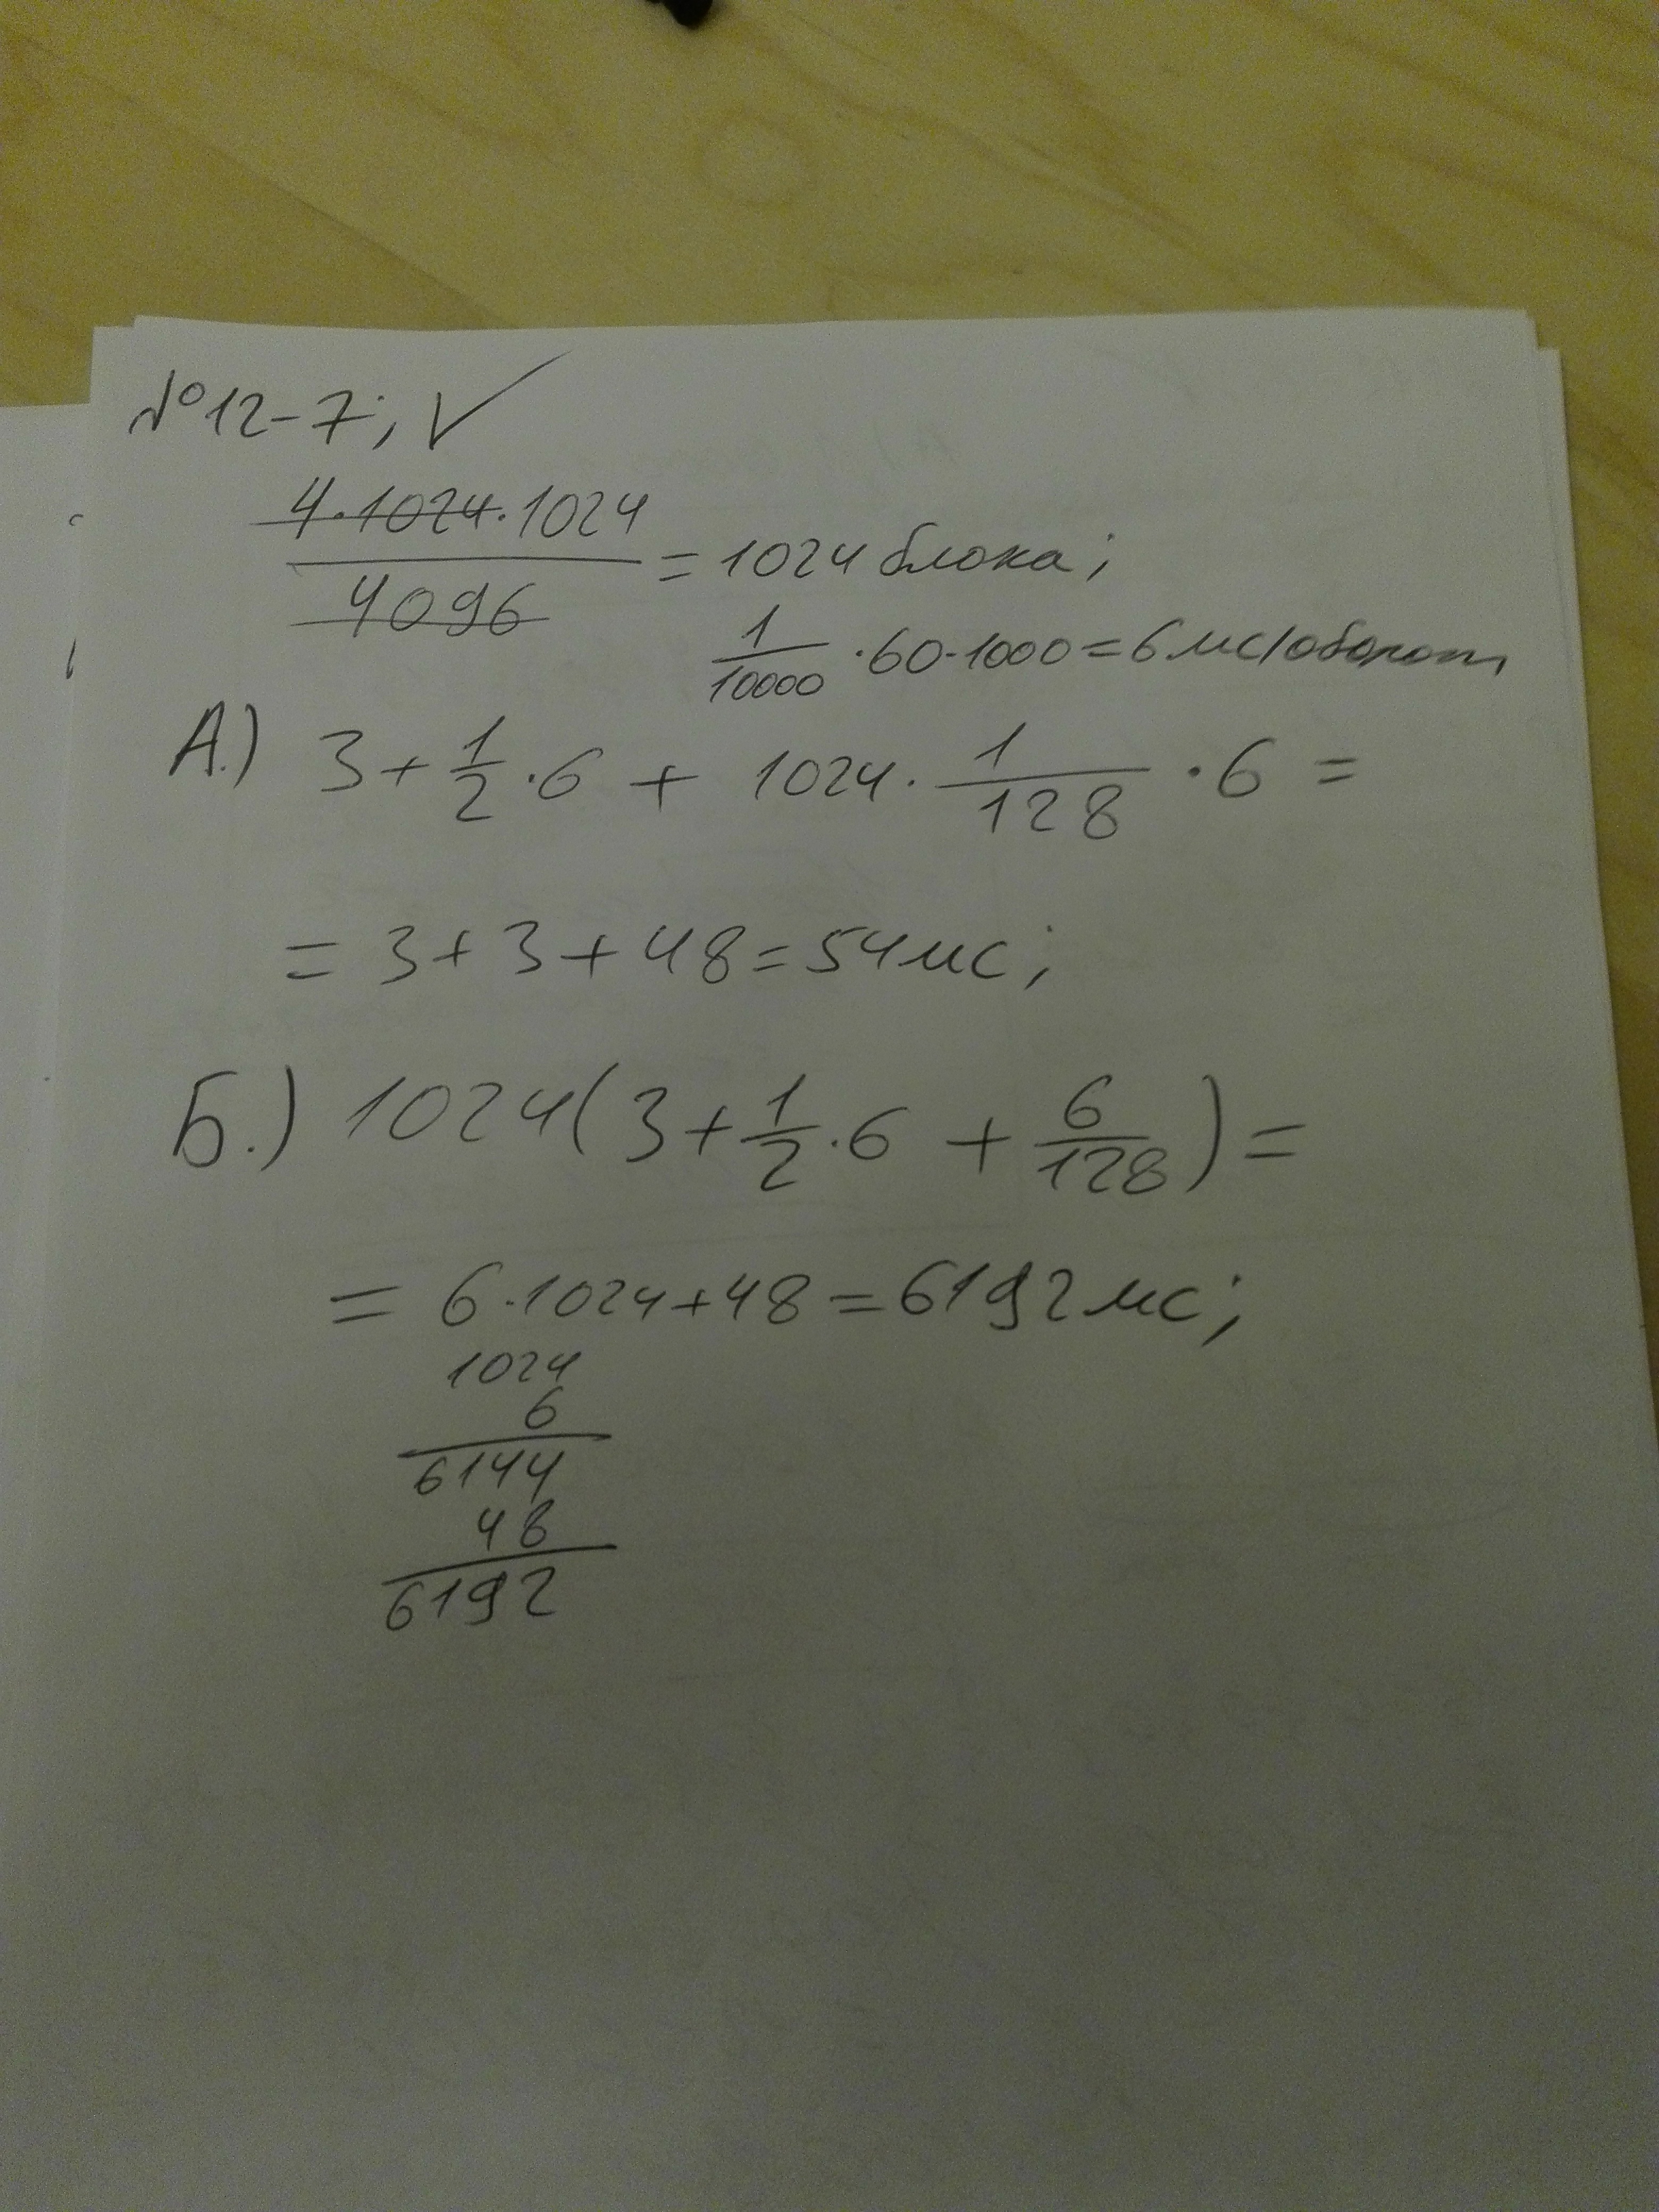 №12-7; ✓
4·1024·1024
4096
= 1024 блока;
1/10000 ·60·1000=6мс/оборот,
А.) 3+1/2·6 + 1024·1/128·6 =
= 3+3+48=54мс;
Б.) 1024(3+1/2·6 + 6/128)=
= 6·1024+48=6192мс;
1024
6
6144
48
6192